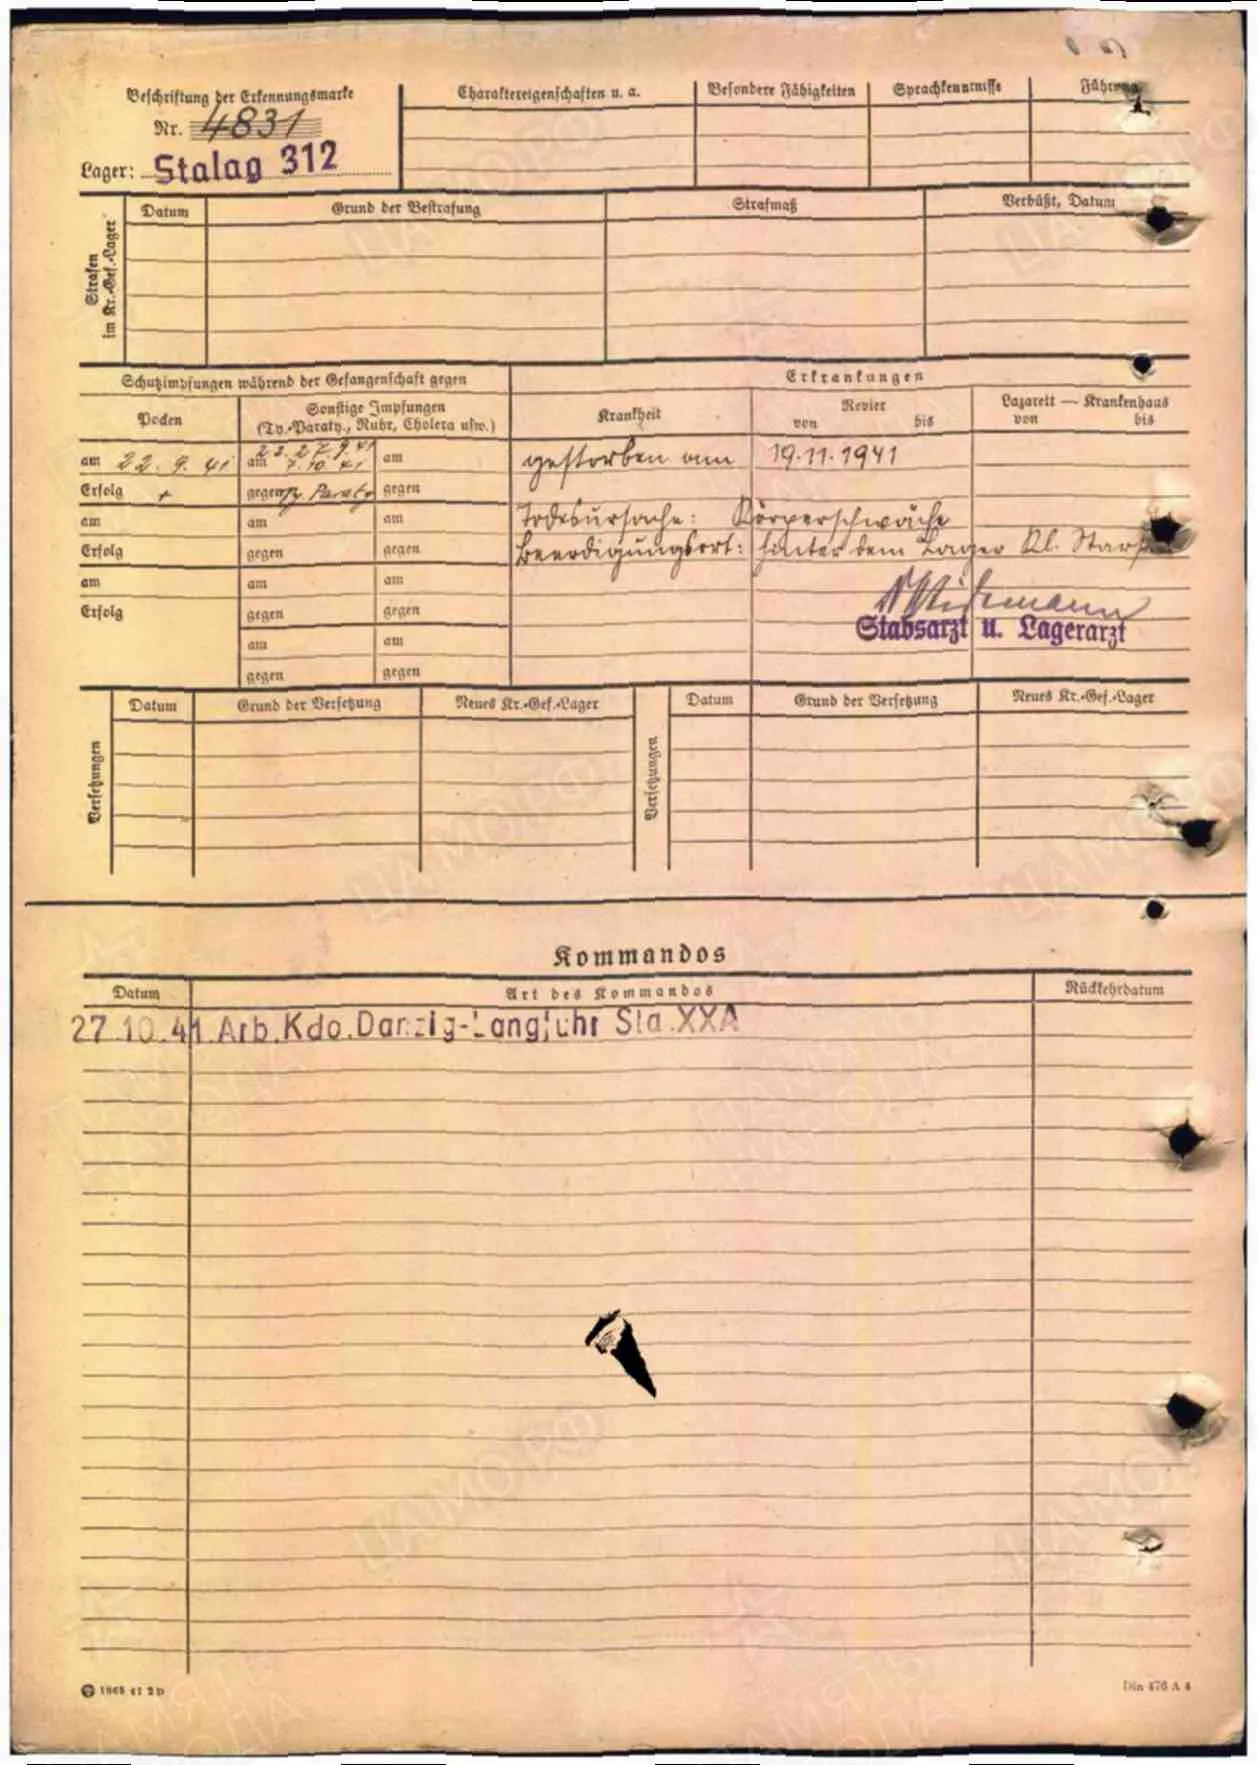 Beschriftung der Erkennungsmarke
Nr. 4831
Lager: Stalag 312
Charaktereigenschaften u. a.
Besondere Fähigkeiten
Sprachkenntnisse
Führung
Strafen im Kr.-Gef.-Lager
Datum
Grund der Bestrafung
Strafmaß
Verbüßt, Datum
Schutzimpfungen während der Gefangenschaft gegen
Erkrankungen
Pocken
Sonstige Impfungen
(Ty.-Paraty., Ruhr, Cholera usw.)
Krankheit
Revier
von bis
Lazarett — Krankenhaus
von bis
am 22. 9. 41 am am
Erfolg + gegen Ty. Paraty gegen
gestorben am 19.11.1941
am am am
Erfolg gegen gegen
Todesursache: Körperschwäche
Beerdigungsort: hinter dem Lager Kl.
am am am
Erfolg gegen gegen
am am
gegen gegen
Stabsarzt u. Lagerarzt
Versetzungen
Datum
Grund der Versetzung
Neues Kr.-Gef.-Lager
Versetzungen
Datum
Grund der Versetzung
Neues Kr.-Gef.-Lager
Kommandos
Datum
Art des Kommandos
Rückkehrdatum
27.10.41. Arb.Kdo.Danzig-Langfuhr Sta.XXA
Din 476 A 4